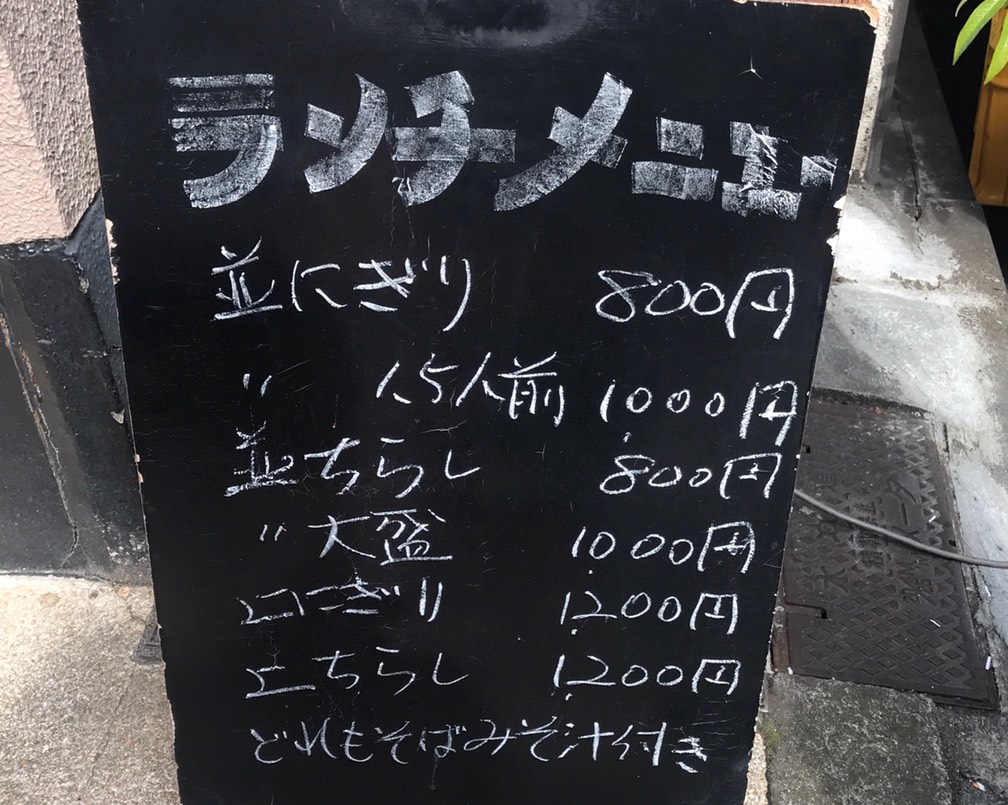 ランチメニュー
並にぎり 800円
〃 1.5人前 1,000円
並ちらし 800円
〃大盛 1,000円
上にぎり 1,200円
上ちらし 1,200円
どれもそばみそ汁付き